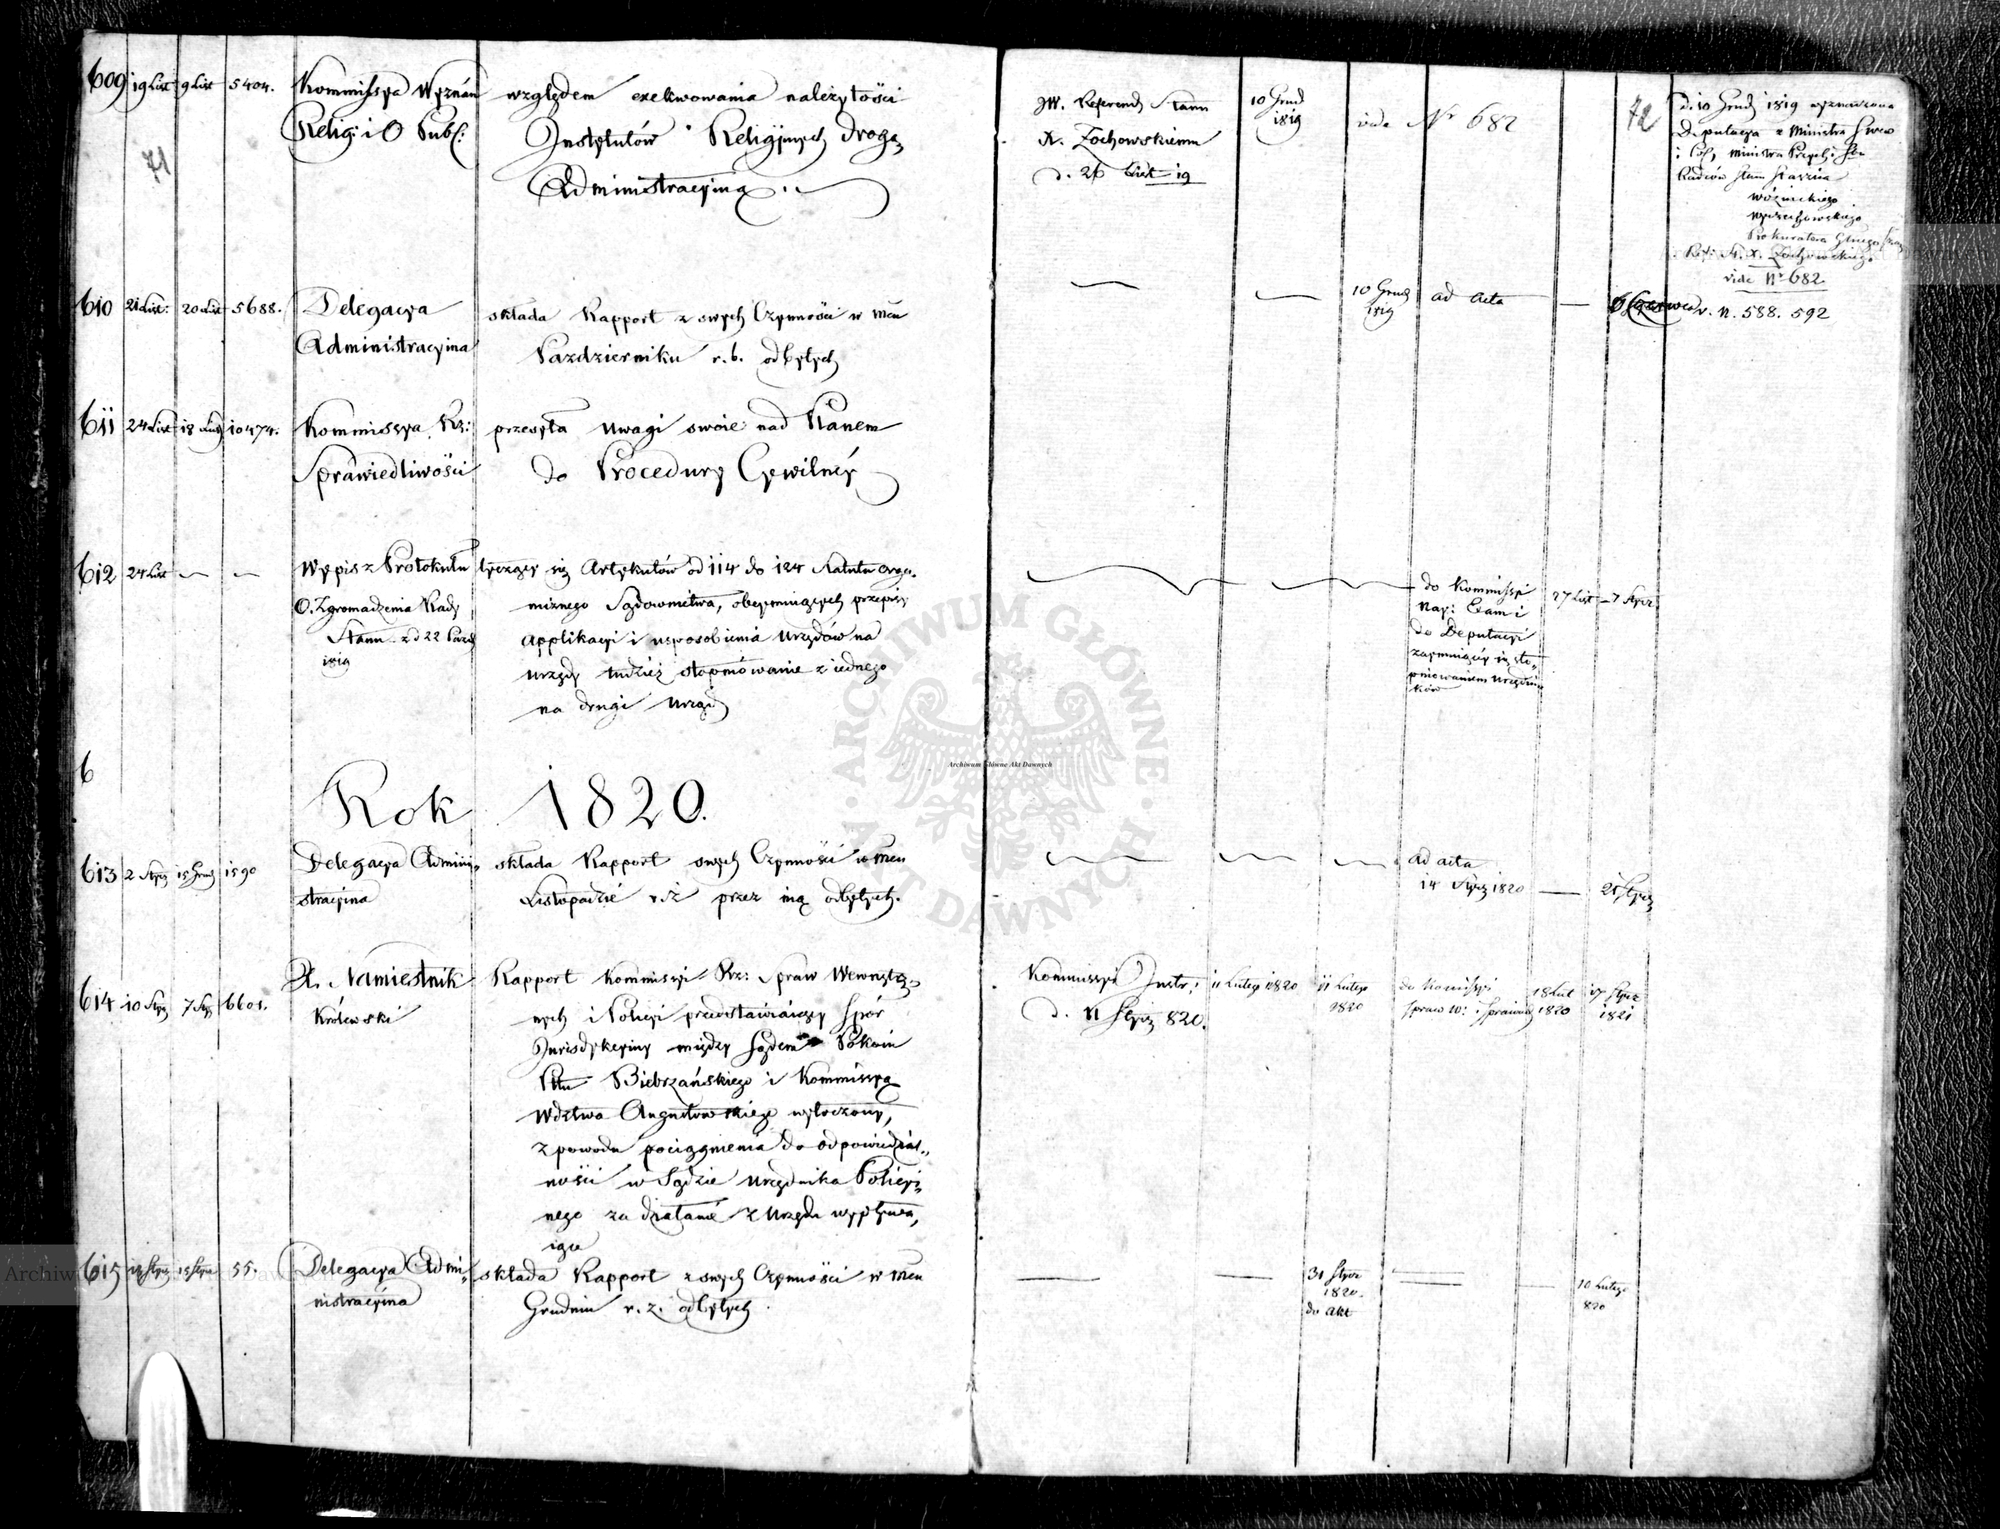 609 19 List 9 List 5404. Kommissya Wyznań względem exekwowania należytości
Relig: i O Pub: Instytutów Religijnych drogą
71
Administracyiną.
JW. Referend Stanu 10 Grud 1819 vide Nr 682 72
X. Żochowskiemu
d. 26 List 19
d. 10 Grud 1819 wyznaczona
Deputacya z Ministra
i Pol, Ministra Przych: i
Radców Stanu Staszica
Woźnickiego
Wyczechowskiego
Prokuratora
Ref: St. X. Żochowskiego
vide Nr 682
610 21 List: 20 List 5688. Delegacya składa Rapport z swych Czynności w mcu
Administracyina Pazdzierniku r. b. odbytych
10 Grud 1819 ad acta v. n. 588. 592
611 24 List 18 10474. Kommissya Rz: przesyła uwagi swoie nad Planem
Sprawiedliwości do Procedury Cywilnéy
612 24 List Wypis z Protokułu tyczący się Artykułów od 114 do 124 Statutu orga-
O. Zgromadzenia Rady nicznego Sądownictwa, obeymuiących przepisy
Stanu z d 22 Paźd applikacyi i usposobienia Urzędów na
1819 urzędy tudzież stopniowanie z iednego
na drugi Urząd
do Kommissyi 27 List 7 Stycz
Nay: Exam i
do Deputacyi
zaymuiącéy się sto-
pniowaniem Urzędni
ków
6
Rok 1820.
613 2 Stycz 15 Grud 1590 Delegacya Admini- składa Rapport swych Czynności w mcu
stracyina Listopadzie r. z przez nią odbytych.
ad acta
14 Stycz 1820 21 Stycz
614 10 Stycz 7 Stycz 6601. X. Namiestnik Rapport Kommissyi Rz: Spraw Wewnętrz-
Królewski nych i Policyi przedstawiaiący Spór
Jurisdykcyiny między Sądem Pokoiu
Pttu Biebrzańskiego i Kommissyą
Wdztwa Augustowskiego wytoczony,
z powodu pociągnienia do odpowiedzial-
ności w Sądzie Urzędnika Policyi-
nego za działanie z Urzędu wypływa-
iące
Kommissyi Instr: 11 Luteg 1820 11 Lutego 1820 do Komissyi 18 Lut 1820 17 Stycz 1821
d. 11 Stycz 820. Spraw W: i Sprawied
615 14 Stycz 15 Stycz 55. Delegacya Admi- składa Rapport z swych Czynności w mcu
nistracyina Grudniu r. z. odbytych
31 Stycz 1820. do Akt
10 Lutego 820
ARCHIWUM GŁÓWNE AKT DAWNYCH
Archiwum Główne Akt Dawnych